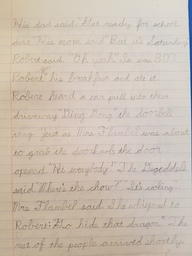 His dad said "Get ready for school
dear "His mom said" But it's Saturday
Robert said. "Oh yeah" So was 8:07.
Robert his breakfast and ate it.
Robert heard a car pull into their
driveway Ding Dong the doorbell
rang Just as Mrs Flambel was about
to grab the doorknob the door
opened "Hi everybody" The
said "When's the show?" "It's
Mrs Flambel said She whispered to
Robert: "Go hide that dragon" The
rest of the people arrived shortly.